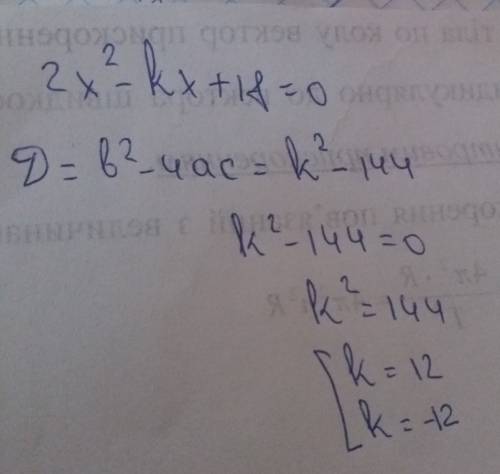 2x² - kx + 18 = 0
D = b² - 4ac = k² - 144
k² - 144 = 0
k² = 144
[ k = 12
k = -12